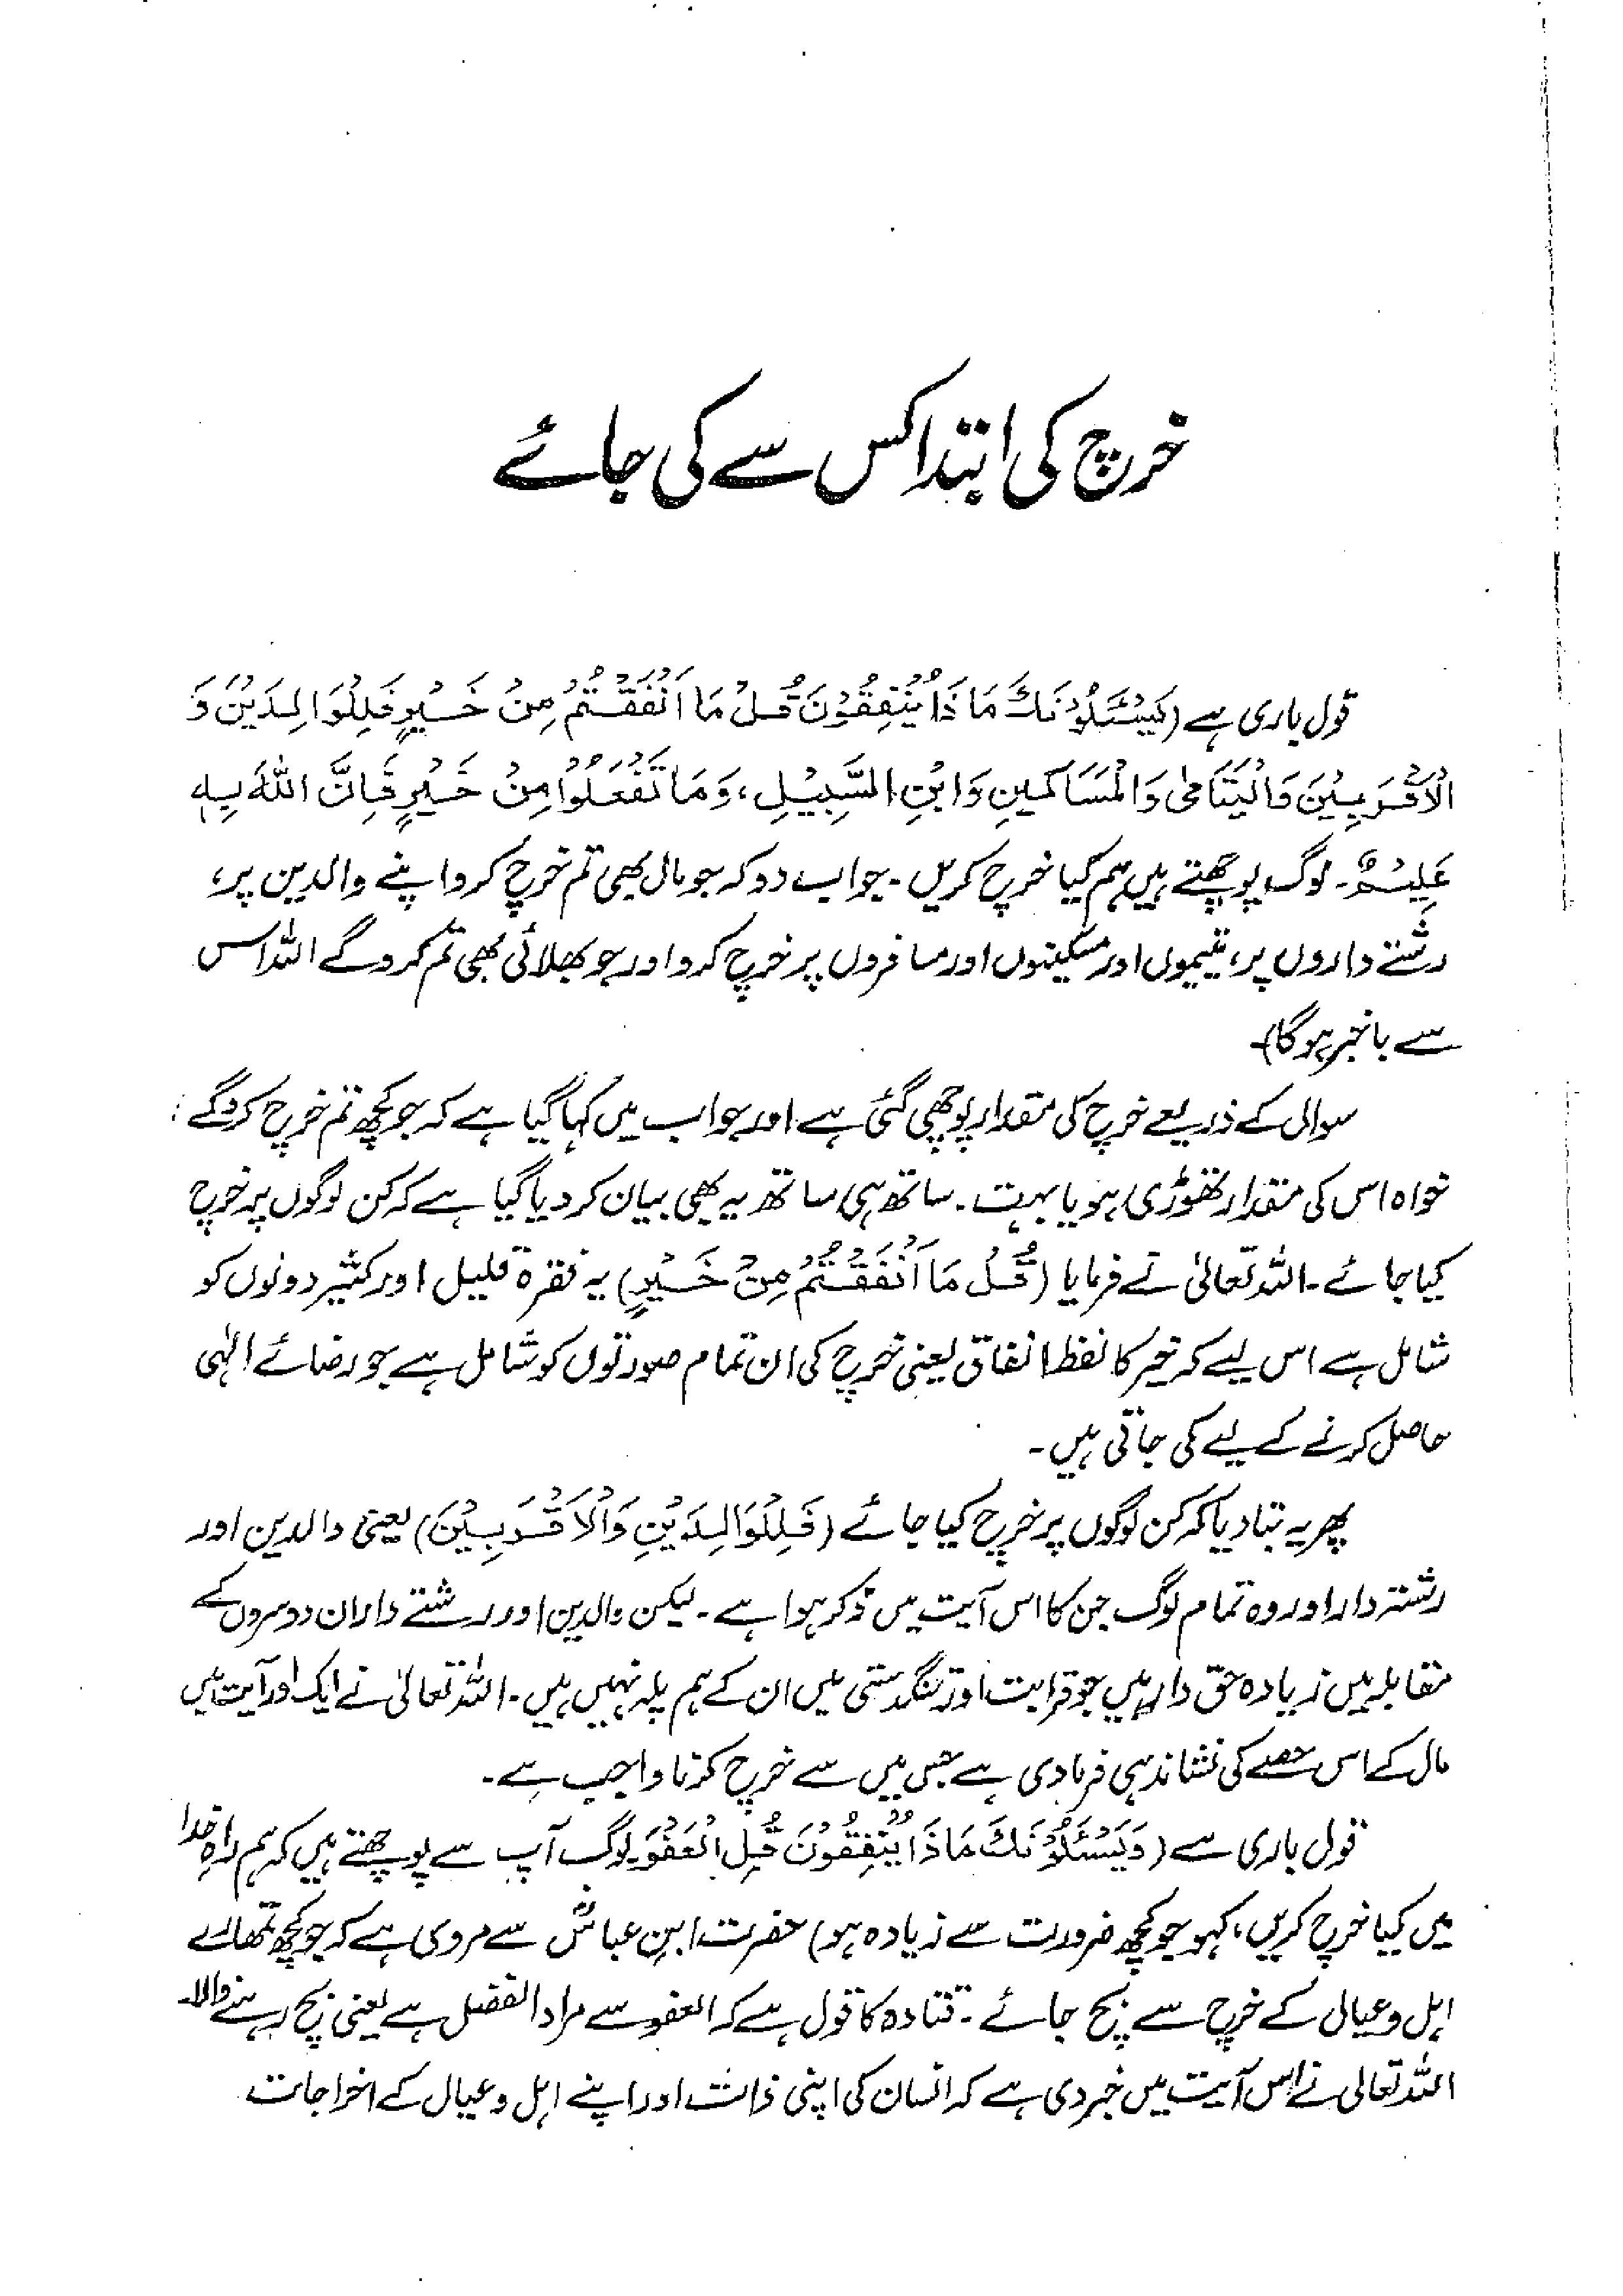 خرچ کی ابتدا کس سے کی جائے
قول باری ہے (يَسْئَلُوْنَكَ مَا ذَا يُنْفِقُوْنَ قُلْ مَا اَنْفَقْتُمْ مِنْ خَيْرٍ فَلِلْوَالِدَيْنِ وَ
الْاَقْرَبِيْنَ وَالْيَتَامٰى وَالْمَسَاكِيْنِ وَابْنِ السَّبِيْلِ، وَمَا تَفْعَلُوْا مِنْ خَيْرٍ فَاِنَّ اللهَ بِهٖ
عَلِيْمٌ۔ لوگ پوچھتے ہیں ہم کیا خرچ کریں۔ جواب دو کہ جو مال بھی تم خرچ کرو اپنے والدین پر،
رشتے داروں پر، یتیموں اور مسکینوں اور مسافروں پر خرچ کرو اور جو بھلائی بھی تم کرو گے اللہ اس
سے باخبر ہوگا)۔
سوال کے ذریعے خرچ کی مقدار پوچھی گئی ہے اور جواب میں کہا گیا ہے کہ جو کچھ تم خرچ کرو گے
خواہ اس کی مقدار تھوڑی ہو یا بہت۔ ساتھ ہی ساتھ یہ بھی بیان کر دیا گیا ہے کہ کن لوگوں پر خرچ
کیا جائے۔ اللہ تعالیٰ نے فرمایا (قُلْ مَا اَنْفَقْتُمْ مِنْ خَيْرٍ) یہ فقرہ قلیل اور کثیر دونوں کو
شامل ہے اس لیے کہ خیر کا لفظ انفاق یعنی خرچ کی ان تمام صورتوں کو شامل ہے جو رضائے الٰہی
حاصل کرنے کے لیے کی جاتی ہیں۔
پھر یہ بتا دیا کہ کن لوگوں پر خرچ کیا جائے (فَلِلْوَالِدَيْنِ وَالْاَقْرَبِيْنَ) یعنی والدین اور
رشتہ دار اور وہ تمام لوگ جن کا اس آیت میں ذکر ہوا ہے۔ لیکن والدین اور رشتے دار ان دوسروں کے
مقابلہ میں زیادہ حق دار ہیں جو قرابت اور تنگدستی میں ان کے ہم پلہ نہیں ہیں۔ اللہ تعالیٰ نے ایک اور آیت میں
مال کے اس حصے کی نشاندہی فرما دی ہے جس میں سے خرچ کرنا واجب ہے۔
قول باری ہے (وَيَسْئَلُوْنَكَ مَاذَا يُنْفِقُوْنَ قُلِ الْعَفْوَ لوگ آپ سے پوچھتے ہیں کہ ہم راہِ خدا
میں کیا خرچ کریں، کہو جو کچھ ضرورت سے زیادہ ہو) حضرت ابن عباسؓ سے مروی ہے کہ جو کچھ تمھارے
اہل و عیال کے خرچ سے بچ جائے۔ قتادہ کا قول ہے کہ العفو سے مراد الفضل ہے یعنی بچ رہنے والا۔
اللہ تعالی نے اس آیت میں خبر دی ہے کہ انسان کی اپنی ذات اور اپنے اہل و عیال کے اخراجات